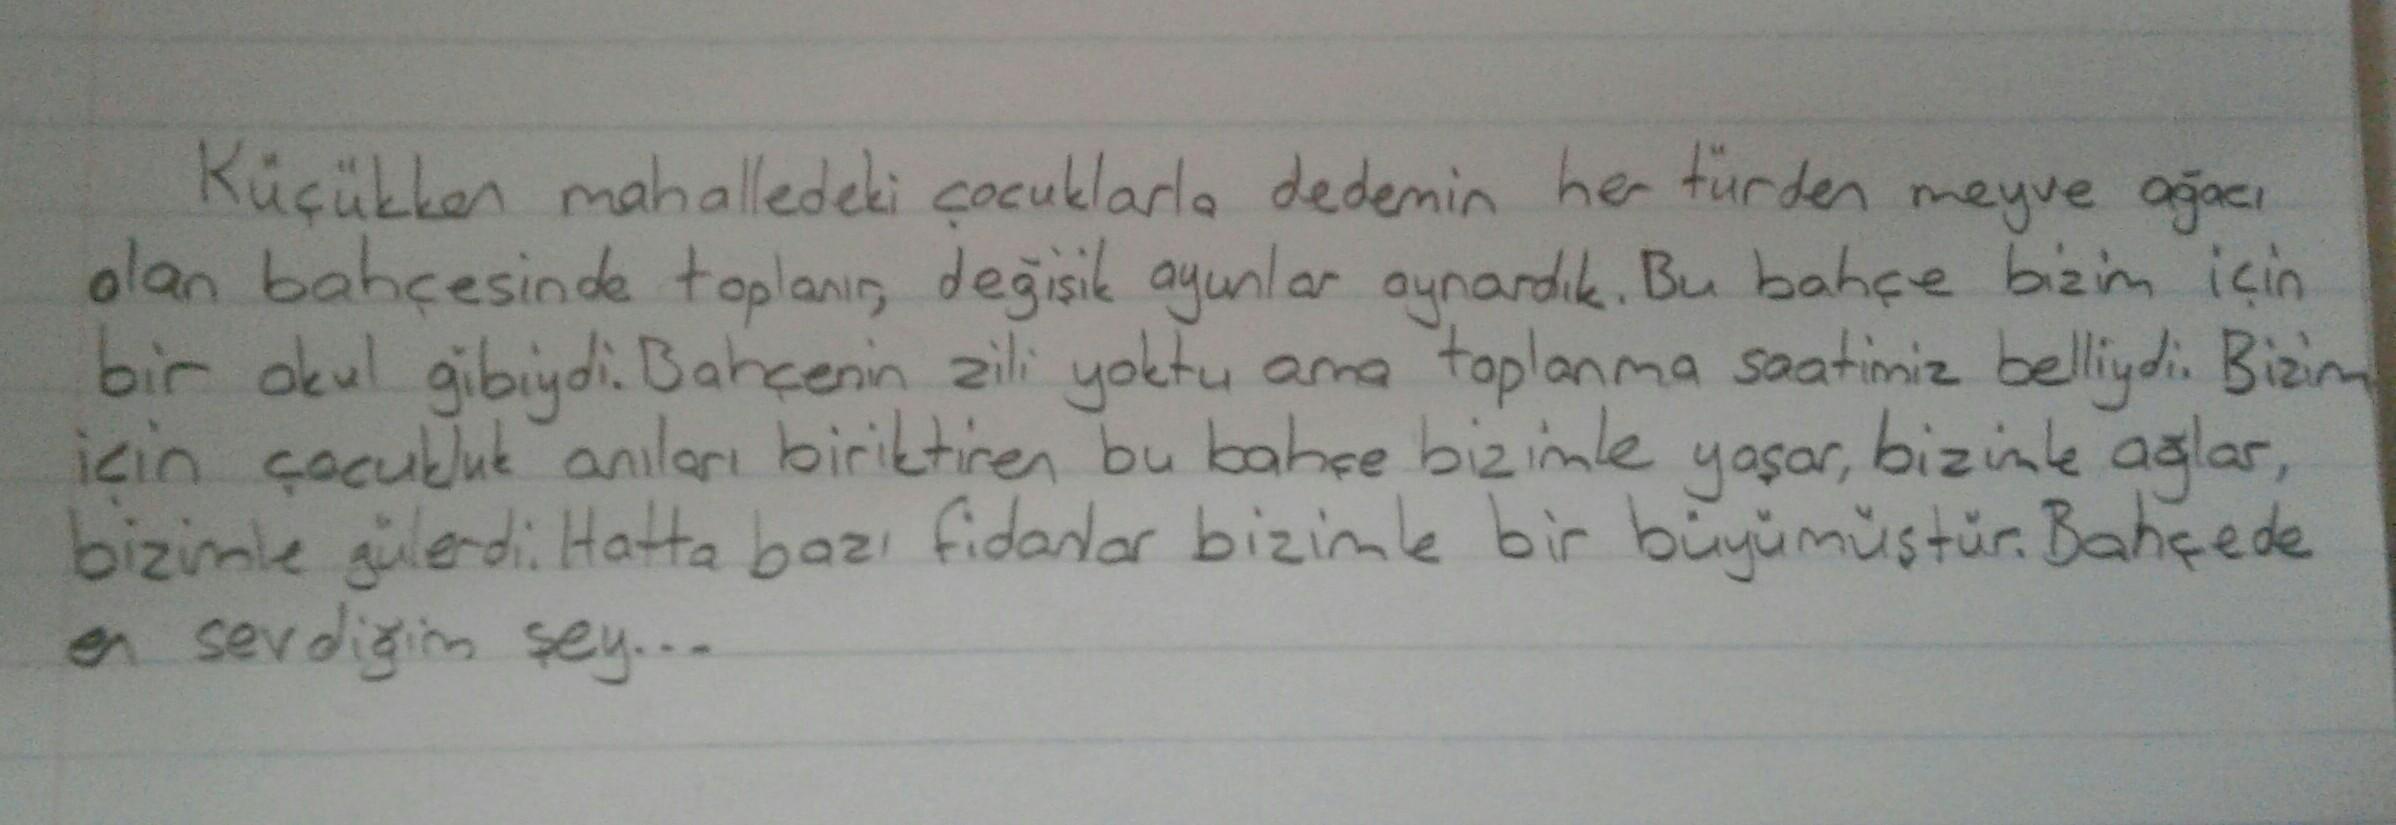 Küçükken mahalledeki çocuklarla dedemin her türden meyve ağacı
olan bahçesinde toplanır, değişik oyunlar oynardık. Bu bahçe bizim için
bir okul gibiydi. Bahçenin zili yoktu ama toplanma saatimiz belliydi. Bizim
için çocukluk anıları biriktiren bu bahçe bizimle yaşar, bizimle ağlar,
bizimle gülerdi. Hatta bazı fidanlar bizimle bir büyümüştür. Bahçede
en sevdiğim şey...